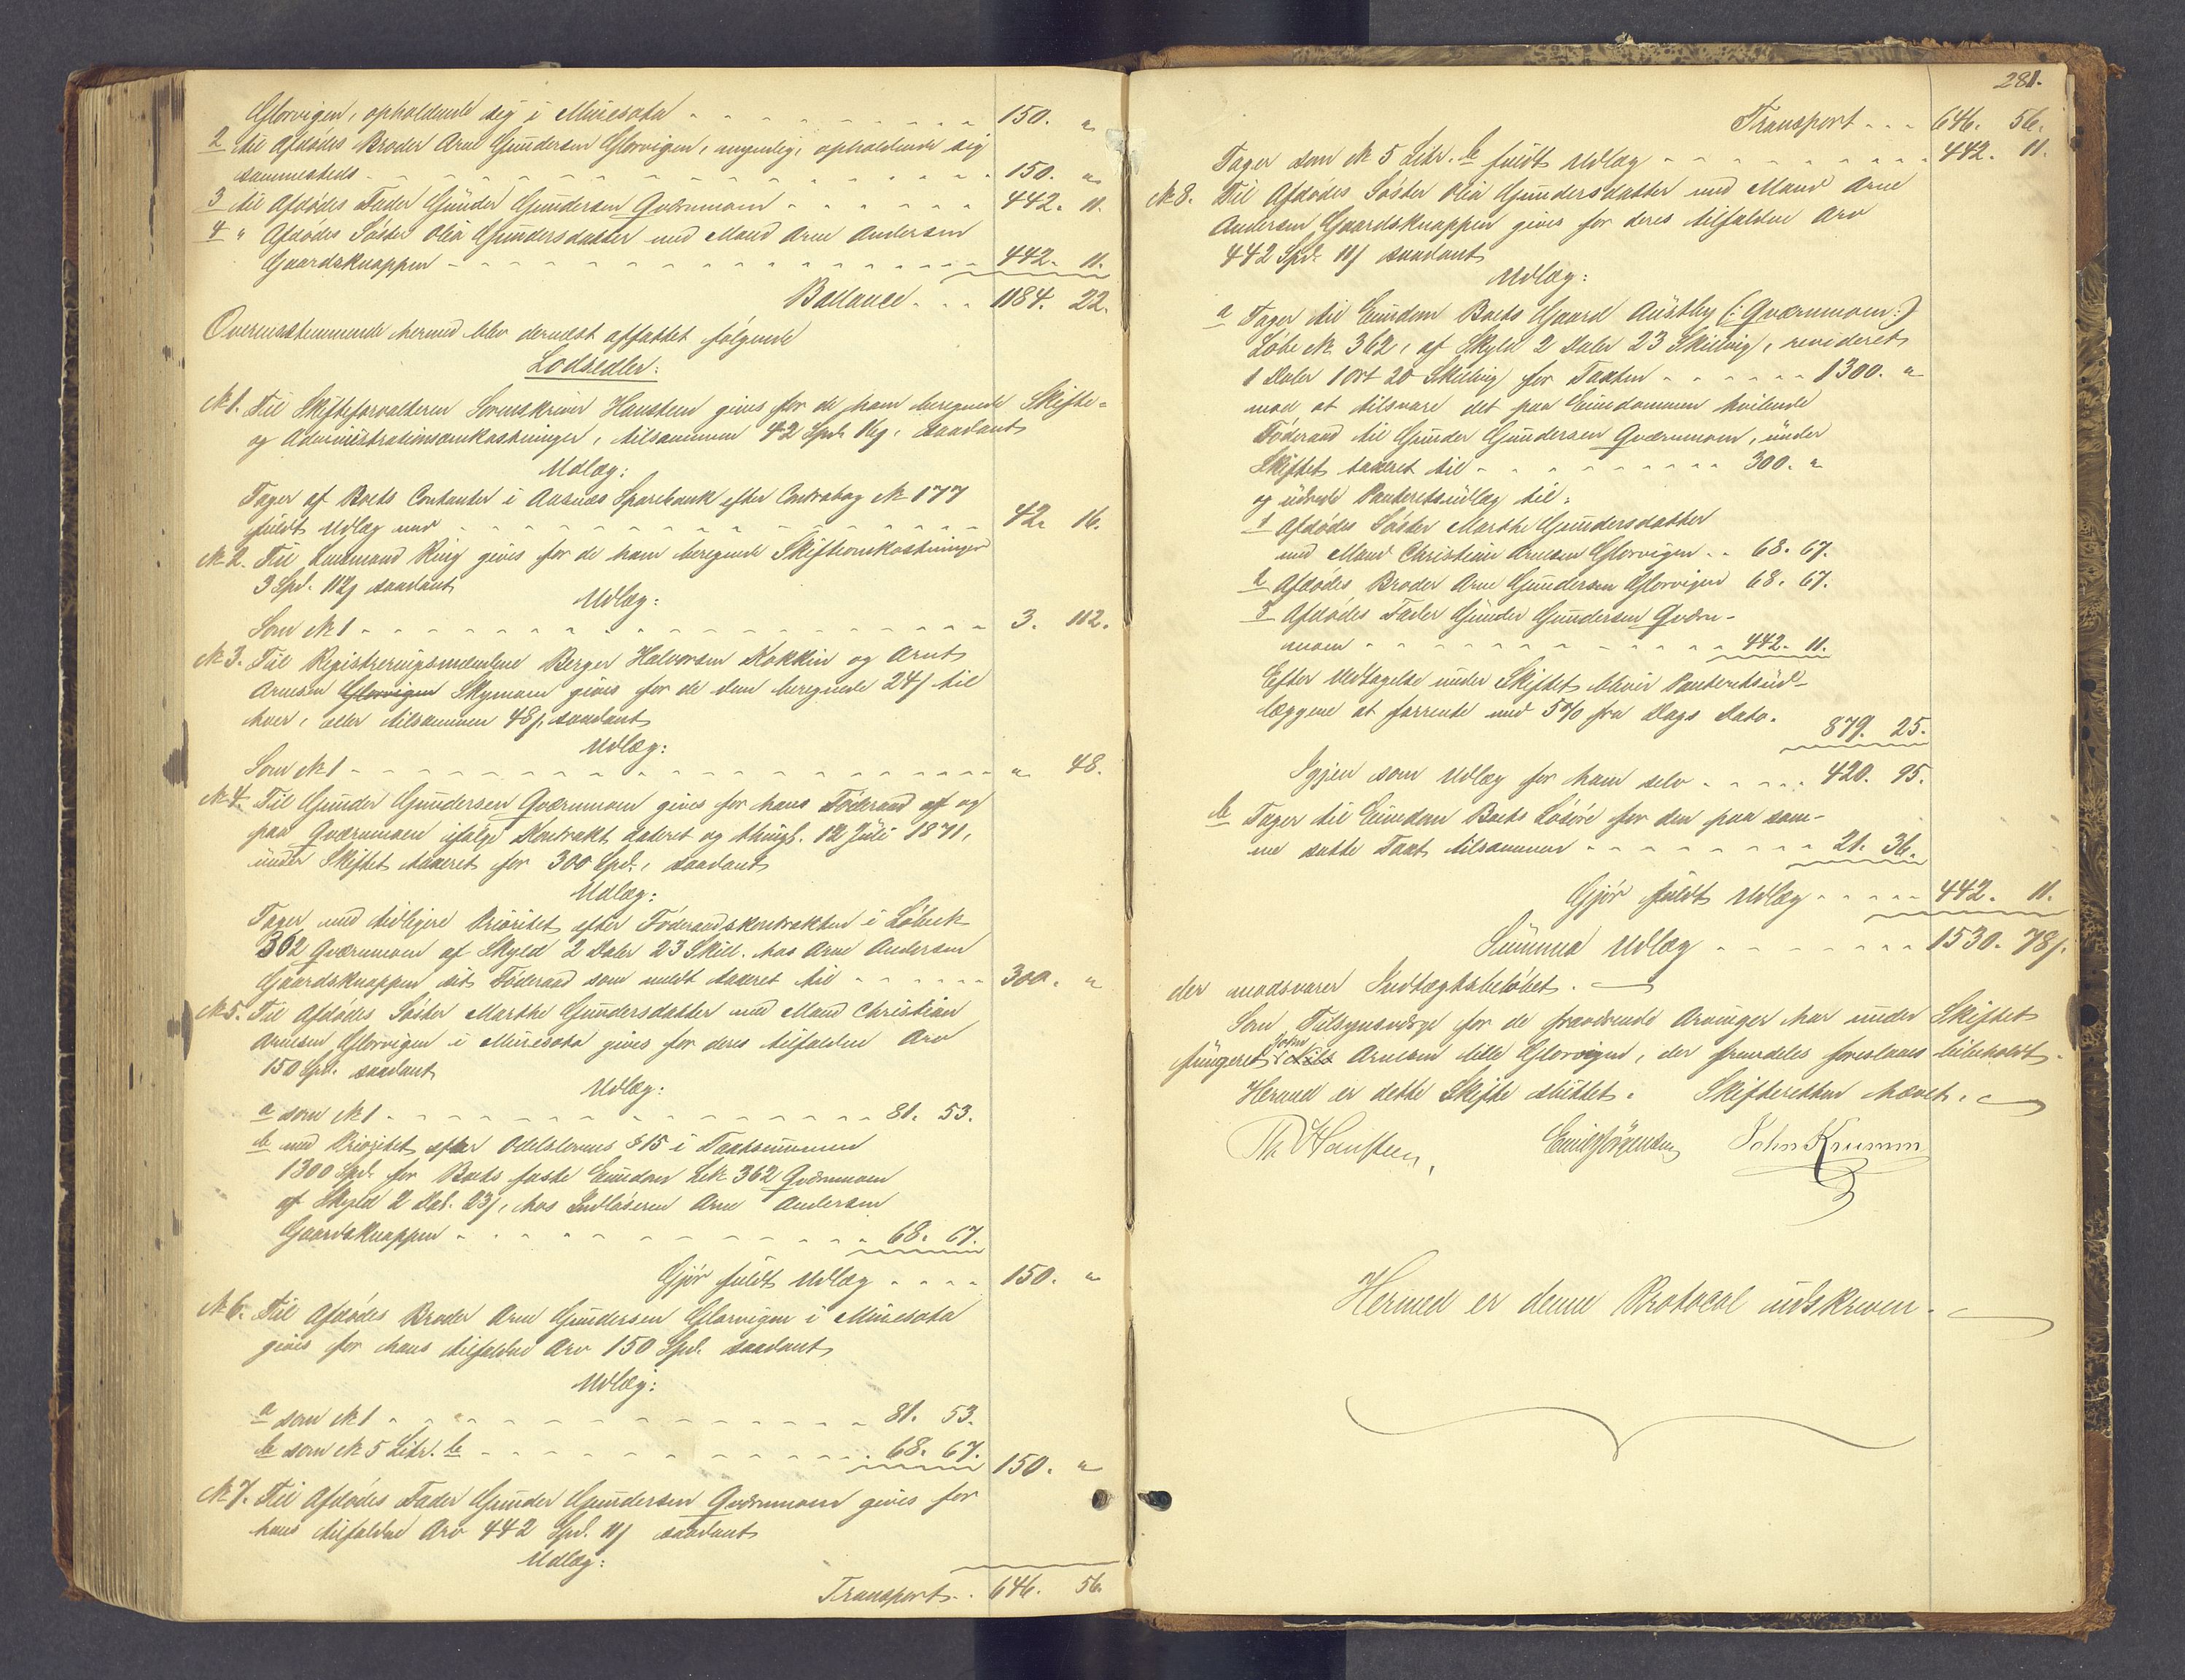 Glorvigen, opholdende sig i Minesota - - - 150. "
2 til Afdødes Broder Arne Gundersen Glorvigen, myndig, opholdende sig
sammesteds - - - 150. "
3 til Afdødes Fader Gunder Gundersen Qværnmoen - - - 442. 11.
4 " Afdødes Søster Olia Gundersdatter med Mand Arne Andersen
Gaardsknappen - - - 442. 11.
Ballance - - - 1184. 22.
Overensstemmende hermed blev dernæst affattet følgende
Lodsedler:
No 1. Til Skifteforvalteren Sorenskriver Hansteen gives for de ham beregnede Skifte-
og Administrationsomkostninger, tilsammen 42 Spd. 16 s, saadant
Udlæg:
Tager af Boets Contanter i Aasnes Sparebank efter Contrabog No 177
fuldt Udlæg med - - - 42. 16.
No 2. Til Lensmand Ring gives for de ham beregnede Skifteomkostninger
3 Spd. 112 s saadant
Udlæg:
Som No 1 - - - 3. 112.
No 3. Til Registreringsmændene Berger Halvorsen Kokkin og Arnt
Arnesen Glorvigen Skymoen gives for de dem beregnede 24 s til
hver, eller tilsammen 48 s, saadant
Udlæg:
Som No 1 - - - " 48.
No 4. Til Gunder Gundersen Qværnmoen gives for hans Føderaad af og
paa Qværnmoen ifølge Kontrakt dateret og thingl. 12 Juli 1871,
under Skiftet taxeret for 300 Spd., saadant
Udlæg:
Tager med tidligere Prioritet efter Føderaadskontrakten i Løbe No
362 Qværnmoen af Skyld 2 Daler 23 Skill. hos Arne Andersen
Gaardsknappen sit Føderaad som meldt taxeret til - - - 300. "
No 5. Til Afdødes Søster Marthe Gundersdatter med Mand Christian
Arnesen Glorvigen i Minesota gives for deres tilfaldne Arv
150 Spd. saadant
Udlæg:
a som No 1 - - - 81. 53.
b med Prioritet efter Odelslovens § 15 i Taxtsummen
1300 Spd. for Boets faste Eiendom L No 362 Qværnmoen
af Skyld 2 Dal. 23 s, hos Indløseren Arne Andersen
Gaardsknappen - - - 68. 67.
Gjør fuldt Udlæg - - - 150. "
No 6. Til Afdødes Broder Arne Gundersen Glorvigen i Minesota
gives for hans tilfaldne Arv 150 Spd. saadant
Udlæg:
a som No 1 - - - 81. 53.
b som No 5 Litr. b - - - 68. 67. 150. "
No 7. Til Afdødes Fader Gunder Gundersen Qværnmoen gives for
hans tilfaldne Arv 442 Spd. 11 s saadant
Udlæg:
Transport - - 646. 56.
281.
Transport - - - 646. 56.
Tager som No 5 Litr. b fuldt Udlæg - - - 442. 11.
No 8. Til Afdødes Søster Olia Gundersdatter med Mand Arne
Andersen Gaardsknappen gives for deres tilfaldne Arv
442 Spd. 11 s saadant
Udlæg:
a Tager til Eiendom Boets Gaard Austby (: Qværnmoen :)
Løbe No 362, af Skyld 2 Daler 23 Skilling, revideret
1 Daler 1 Ort 20 Skilling for Taxten - - - 1300. "
mod at tilsvare det paa Eiendommen hvilende
Føderaad til Gunder Gundersen Qværnmoen, under
Skiftet taxeret til - - - 300. "
og udrede Panteretsudlæg til:
1 Afdødes Søster Marthe Gundersdatter
med Mand Christian Arnesen Glorvigen - - 68. 67.
2 Afdødes Broder Arne Gundersen Glorvigen 68. 67.
3 Afdødes Fader Gunder Gundersen Qværn-
moen - - - 442. 11.
Efter Vedtagelse under Skiftet bliver Panteretsud-
læggene at forrente med 5% fra Dags Dato.
879. 25.
Igjen som Udlæg for ham selv - - - 420. 95.
b Tager til Eiendom Boets Løsøre for den paa sam-
me satte Taxt tilsammen - - - 21. 36.
Gjør fuldt Udlæg - - - 442. 11.
Summa Udlæg - - - 1530. 78 s.
der modsvarer Indtægtsbeløbet.
Som Tilsynsværge for de fraværende Arvinger har under Skiftet
fungeret Nils John Arnesen lille Glorvigen, der fremdeles foreslaaes bibeholdt.
Hermed er dette Skifte sluttet. Skifteretten hævet.
Th Hansteen, Emil Jørgensen John Krumm
Hermed er denne Protocol udskreven.